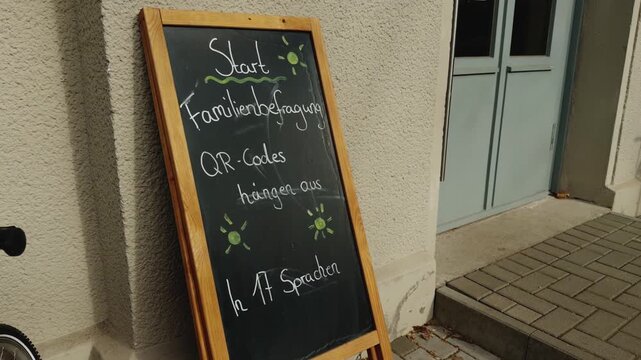 Start
Familienbefragung
QR-Codes
hängen aus
In 17 Sprachen